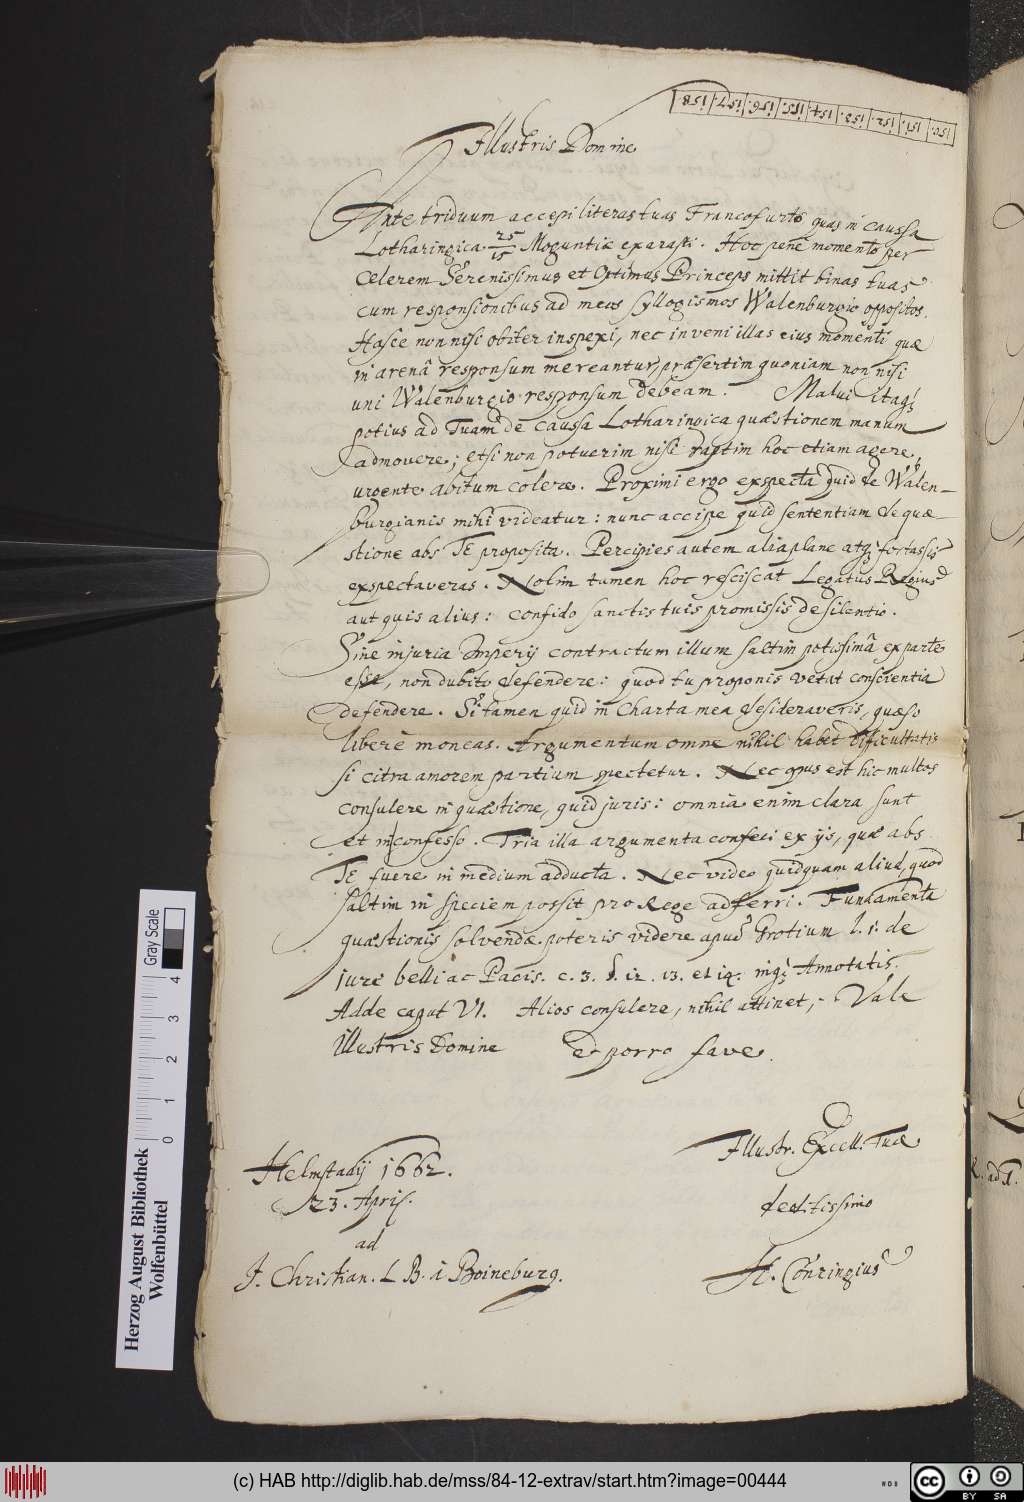 150. 151. 152. 153. 154. 155. 156. 157. 158
Illustris Domine
Ante triduum accepi literas tuas Francofurto quas in caussa
Lotharingica 25/15 Moguntiæ exarasti. Hoc penè momento per
celerem Serenissimus et Optimus Princeps mittit binas tuas
cum responsionibus ad meos syllogismos Walenburgio oppositos.
Hasce non nisi obiter inspexi, nec inveni illas eius momenti quæ
in arenâ responsum mereantur, præsertim quoniam non nisi
uni Walenburgio responsum debeam. Malui itaq;
potius ad Tuam de caussa Lotharingica quæstionem manum
admovere; etsi non potuerim nisi raptim hoc etiam agere,
urgente abitum celere. Proximè ergo exspecta quid de Walen-
burgianis mihi videatur: nunc accipe quid sententiam de quæ
stione abs Te proposita. Percipies autem alia plane atq; fortassis
exspectaveras. Nolim tamen hoc resciscat Legatus Regius
aut quis alius: confido sanctis tuis promissis de silentio.
Sine injuria Imperij contractum illum saltim potissimâ ex parte
esse, non dubito defendere: quod tu proponis vetat conscientia
defendere. Si tamen quid in charta mea desideraveris, quæso
liberè moneas. Argumentum omne nihil habet difficultatis
si citra amorem partium spectetur. Nec opus est hic multos
consulere in quæstione, quid juris: omnia enim clara sunt
et in confesso. Tria illa argumenta confeci ex ijs, quæ abs
Te fuere in medium adducta. Nec video quidquam aliud, quod
saltim in speciem possit pro Rege adferri. Fundamenta
quæstionis solvendæ poteris videre apud Grotium l. 1. de
jure belli ac Pacis. c. 3. §. 12. 13. et 14. inq; Annotatis.
Adde caput VI. Alios consulere, nihil attinet. Vale
Illustris Domine et porro fave.
Illustr. Excell. Tuæ
Helmstadij 1662.
23. April.
deditissimo
ad
J. Christian. L B. à Boineburg.
H. Conringius
Herzog August Bibliothek
Wolfenbüttel
0 1 2 3 4
Gray Scale
(c) HAB http://diglib.hab.de/mss/84-12-extrav/start.htm?image=00444
cc BY SA